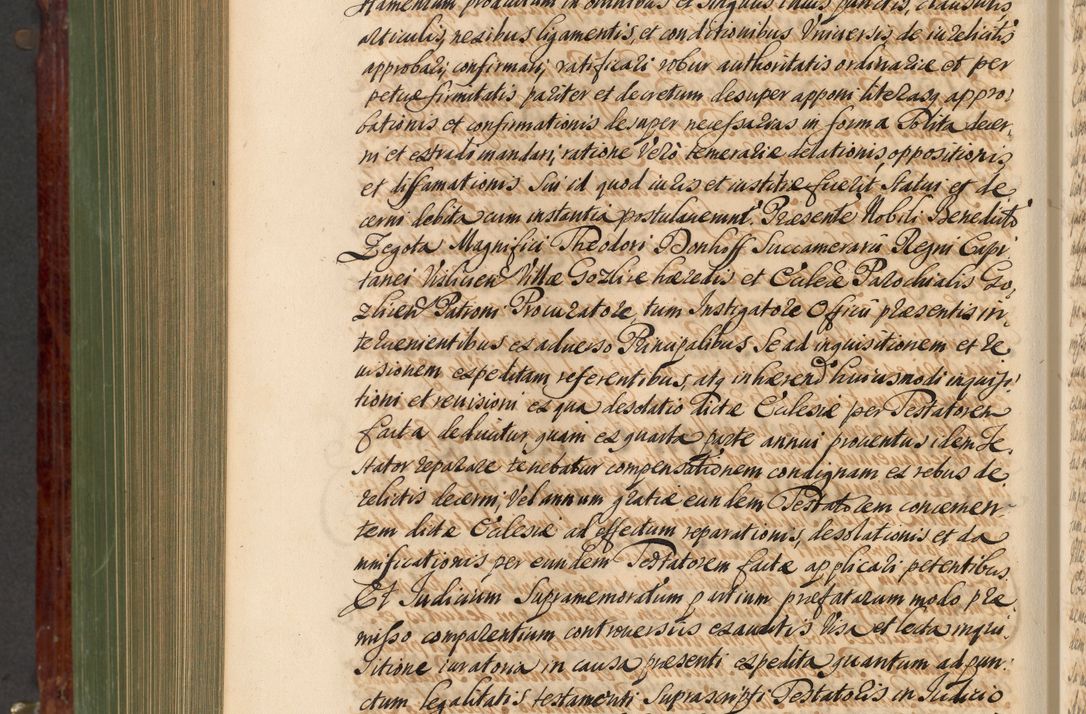 stamentum productum in omnibus et singulis suis punctis, clausulis
articulis, nexibus ligamentis, et conditionibus Universis de iure licitis
approbari, confirmari, ratificari robur authoritatis ordinariæ et per
petuæ firmitatis pariter et decretum desuper apponi literasq appro
bationis et confirmationis desuper necessarias in forma Solita decer,
ni et extradi mandari, ratione Verò temerariæ delationis oppositionis
et diffamationis Sui id quod iuris et iustitiæ fuerit, Statui et de
cerni debita cum instantia postulaverunt. Præsente Nobili Benedicto
Zegota Magnifici Theodori Donhoff Succamerarii Regni Capi
tanei Vislicien Villæ Gozlice hæredis et Ecclesiæ Parochialis Go,
zlicen Patroni Procuratore, tum Instigatore Officii præsentis in,
tervenientibus ex adverso Principalibus Se ad inquisitionem et re
visionem expeditam referentibus, atq inhærend huiusmodi inquisi
tioni et revisioni ex qua desolatio dictæ Ecclesiæ per Testatorem
facta deducitur, quam ex quarta parte annui proventus idem Te,
stator reparare tenebatur compensationem condignam ex rebus de
relictis decerni, Vel annum gratiæ eundem Testatorem concernen
tem dictæ Ecclesiæ ad effectum reparationis, desolationis et da
mnificationis per eundem Testatorem factæ applicari petentibus
Et Iudicium Supramemoratum partium præfatarum modo præ,
misso comparentium controversiis exauditis Visa et lecta inqui
sitione iuratoria in causa præsenti expedita quantum ad pun,
ctum legalitatis testamenti Suprascripti Testatoris in Iudicio